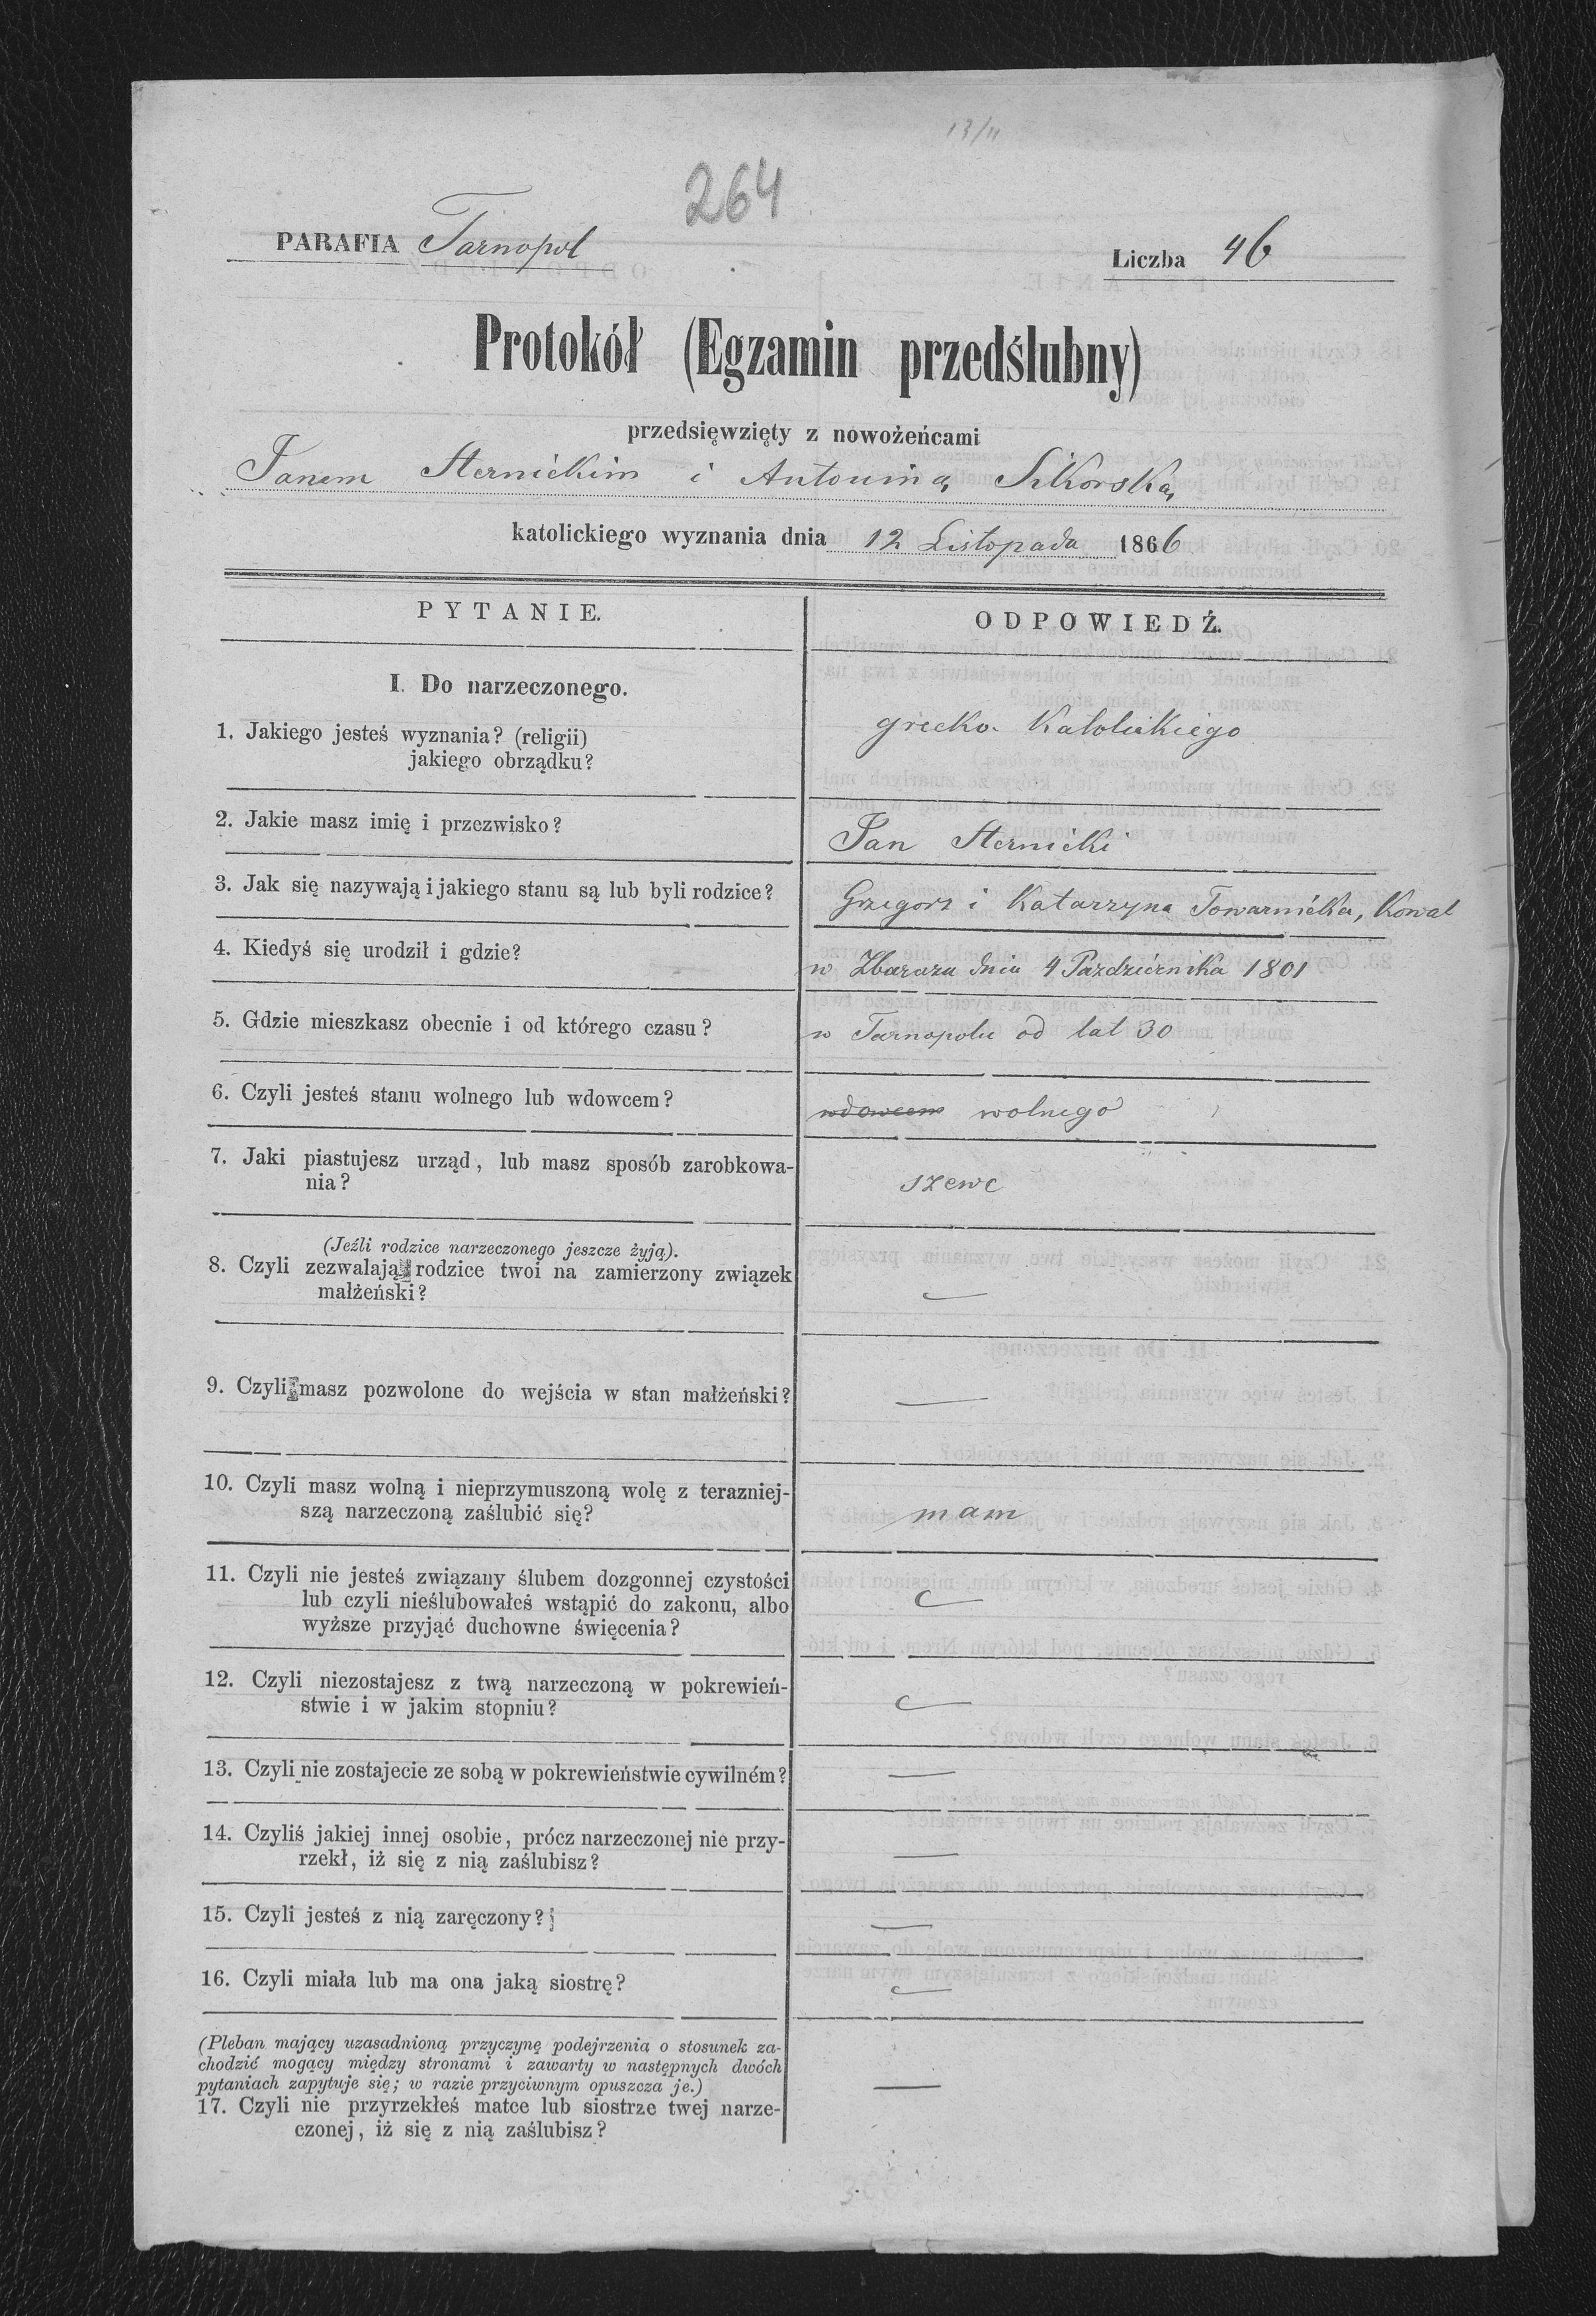 13/11
264
PARAFIA Tarnopol
Liczba 46
Protokół (Egzamin przedślubny)
przedsięwzięty z nowożeńcami
Janem Sternickim i Antoniną Sikorską
katolickiego wyznania dnia 12 Listopada 1866
PYTANIE.
ODPOWIEDŹ.
I. Do narzeczonego.
1. Jakiego jesteś wyznania? (religii)
jakiego obrządku?
grecko. Katolickiego
2. Jakie masz imię i przezwisko?
Jan Sternicki
3. Jak się nazywają i jakiego stanu są lub byli rodzice?
Grzegorz i Katarzyna Towarnicka, Kowal
4. Kiedyś się urodził i gdzie?
w Zbarazu dnia 4 Października 1801
5. Gdzie mieszkasz obecnie i od którego czasu?
w Tarnopolu od lat 30
6. Czyli jesteś stanu wolnego lub wdowcem?
wdowcem wolnego
7. Jaki piastujesz urząd, lub masz sposób zarobkowa-
nia?
szewc
(Jeźli rodzice narzeczonego jeszcze żyją).
8. Czyli zezwalają rodzice twoi na zamierzony związek
małżeński?
9. Czyli masz pozwolone do wejścia w stan małżeński?
10. Czyli masz wolną i nieprzymuszoną wolę z terazniej-
szą narzeczoną zaślubić się?
mam
11. Czyli nie jesteś związany ślubem dozgonnej czystości
lub czyli nieślubowałeś wstąpić do zakonu, albo
wyższe przyjąć duchowne święcenia?
12. Czyli niezostajesz z twą narzeczoną w pokrewień-
stwie i w jakim stopniu?
13. Czyli nie zostajecie ze sobą w pokrewieństwie cywilném?
14. Czyliś jakiej innej osobie, prócz narzeczonej nie przy-
rzekł, iż się z nią zaślubisz?
15. Czyli jesteś z nią zaręczony?
16. Czyli miała lub ma ona jaką siostrę?
(Pleban mający uzasadnioną przyczynę podejrzenia o stosunek za-
chodzić mogący między stronami i zawarty w następnych dwóch
pytaniach zapytuje się; w razie przyciwnym opuszcza je.)
17. Czyli nie przyrzekłeś matce lub siostrze twej narze-
czonej, iż się z nią zaślubisz?